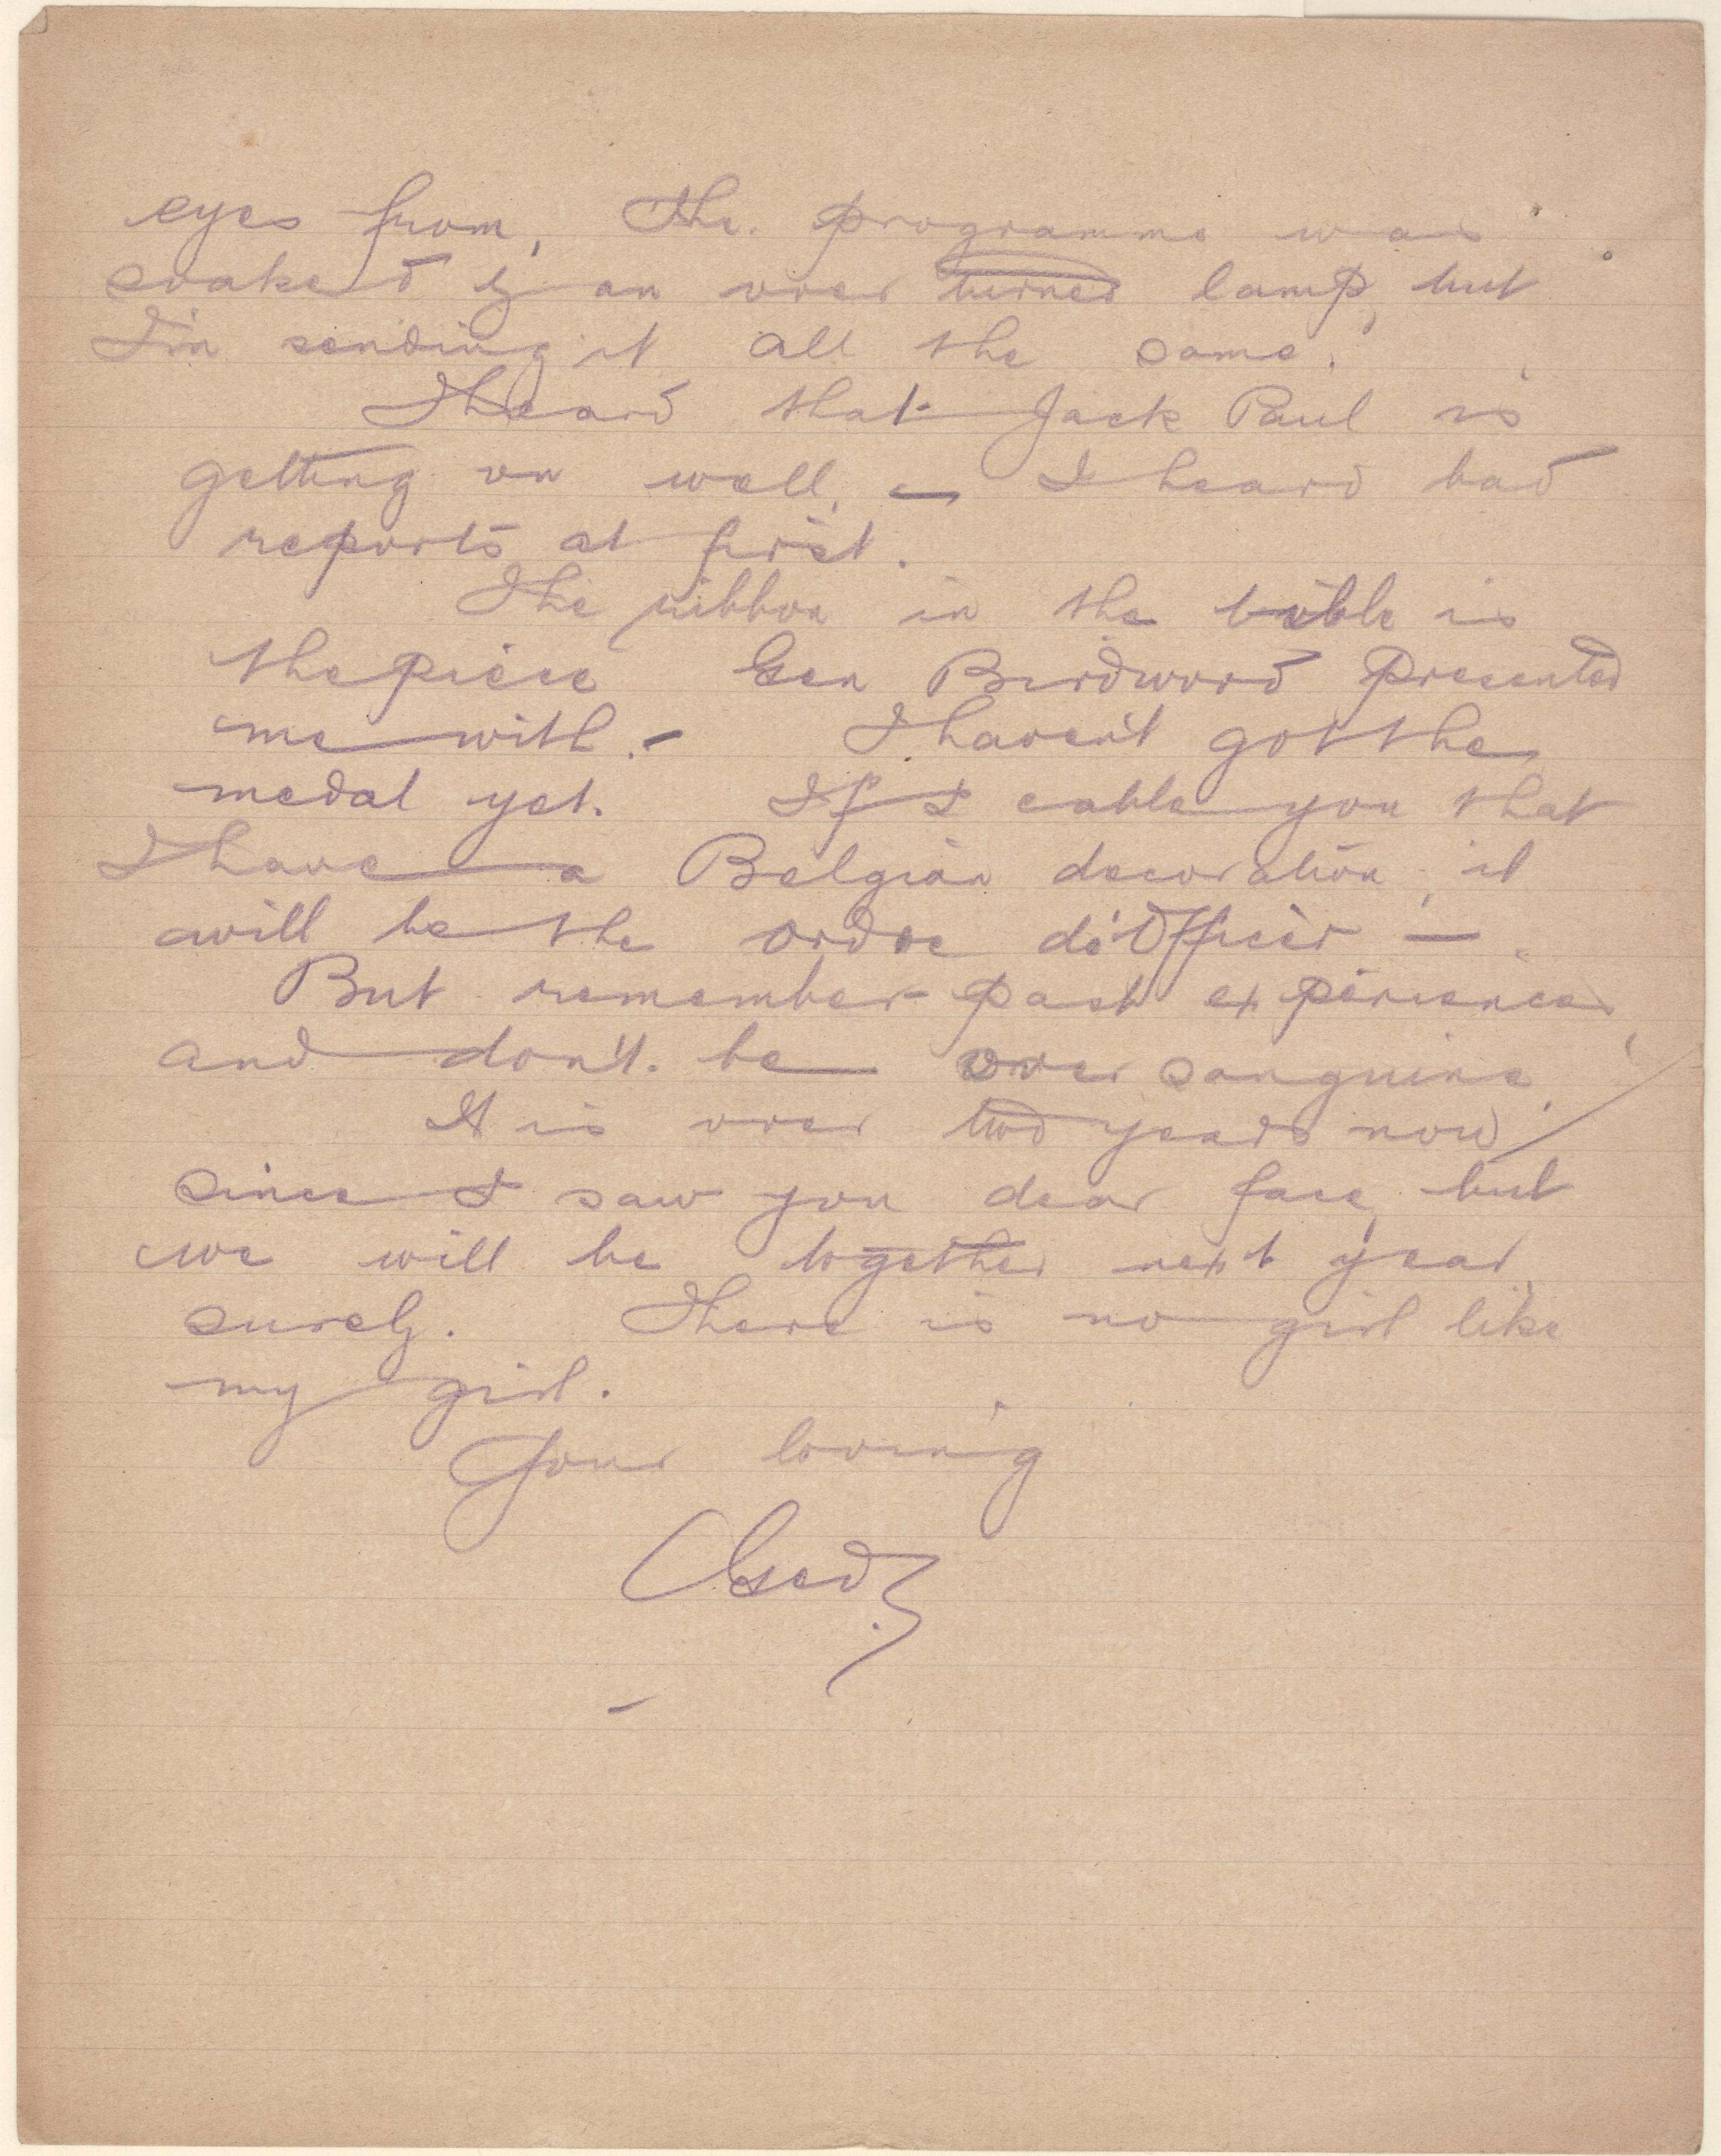 eyes from, The programme was
soaked by an over turned lamp, but
I'm sending it all the same.
I heard that Jack Paul is
getting on well, — I heard bad
reports at first.
The ribbon in the bible is
the piece Gen Birdword presented
me with. - I haven't got the
medal yet. If I cable you that
I have a Belgian decoration, it
will be the ordre d'Officer —
But remember past experiences,
and don't be over sanguine.
It is over two years now
since I saw you dear face, but
we will be together next year,
surely. There is no girl like
my girl.
Your loving
Ged